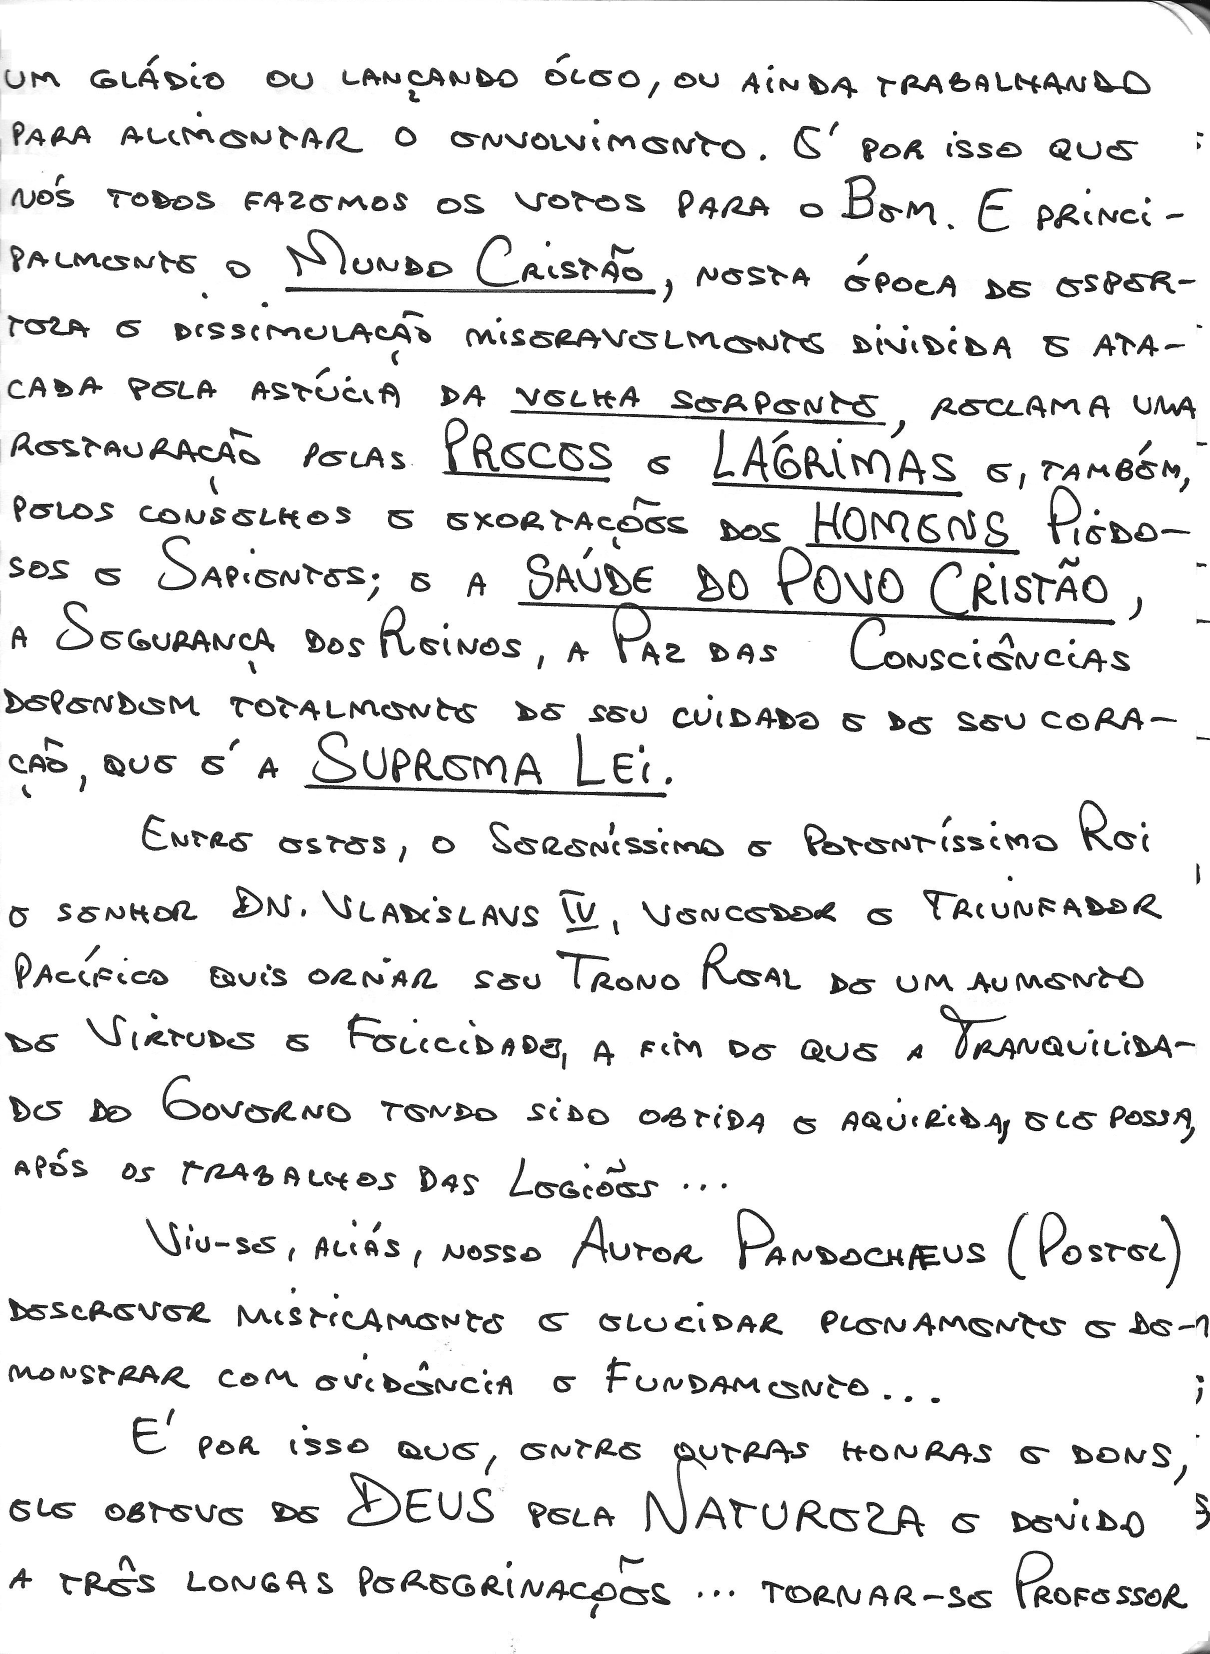 UM GLÁDIO OU LANÇANDO ÓLEO, OU AINDA TRABALHANDO
PARA ALIMENTAR O ENVOLVIMENTO. É POR ISSO QUE
NÓS TODOS FAZEMOS OS VOTOS PARA O BEM. E PRINCI-
PALMENTE O MUNDO CRISTÃO, NESTA ÉPOCA DE ESPER-
TEZA E DISSIMULAÇÃO MISERAVELMENTE DIVIDIDA E ATA-
CADA PELA ASTÚCIA DA VELHA SERPENTE, RECLAMA UMA
RESTAURAÇÃO PELAS PRECES E LÁGRIMAS E, TAMBÉM,
PELOS CONSELHOS E EXORTAÇÕES DOS HOMENS PIEDO-
SOS E SAPIENTES; E A SAÚDE DO POVO CRISTÃO,
A SEGURANÇA DOS REINOS, A PAZ DAS CONSCIÊNCIAS
DEPENDEM TOTALMENTE DE SEU CUIDADO E DE SEU CORA-
ÇÃO, QUE É A SUPREMA LEI.
ENTRE ESTES, O SERENÍSSIMO E POTENTÍSSIMO REI
E SENHOR DN. VLADISLAVS IV, VENCEDOR E TRIUNFADOR
PACÍFICO QUIS ORNAR SEU TRONO REAL DE UM AUMENTO
DE VIRTUDE E FELICIDADE, A FIM DE QUE A TRANQUILIDA-
DE DO GOVERNO TENDO SIDO OBTIDA E AQUIRIDA, ELE POSSA,
APÓS OS TRABALHOS DAS LEGIÕES ...
VIU-SE, ALIÁS, NOSSO AUTOR PANDOCHÆUS (POSTEL)
DESCREVER MISTICAMENTE E ELUCIDAR PLENAMENTE E DE-
MONSTRAR COM EVIDÊNCIA E FUNDAMENTO...
É POR ISSO QUE, ENTRE OUTRAS HONRAS E DONS,
ELE OBTEVE DE DEUS PELA NATUREZA E DEVIDO
A TRÊS LONGAS PEREGRINAÇÕES ... TORNAR-SE PROFESSOR